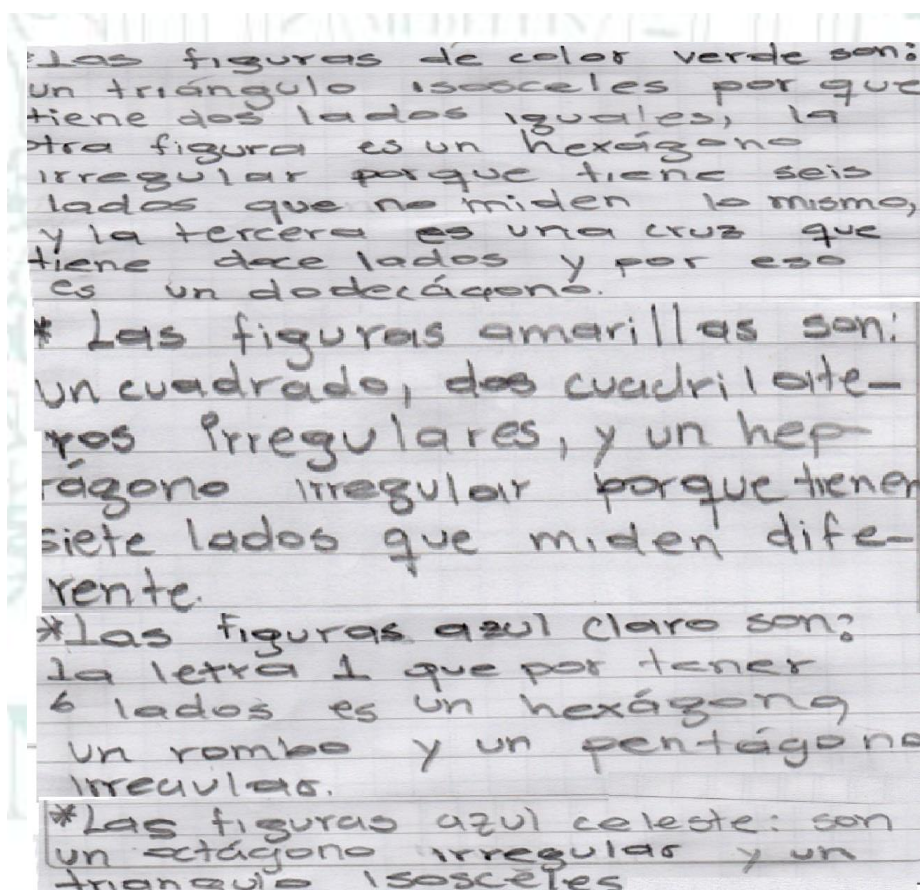 *Las figuras de color verde son:
un triángulo isosceles por que
tiene dos lados iguales, la
otra figura es un hexágono
irregular porque tiene seis
lados que no miden lo mismo,
y la tercera es una cruz que
tiene doce lados y por eso
es un dodecágono.
* Las figuras amarillas son:
un cuadrado, dos cuadriláte-
ros irregulares, y un hep-
tágono irregular porque tienen
siete lados que miden dife-
rente.
*Las figuras azul claro son:
la letra L que por tener
6 lados es un hexágono,
un rombo y un pentágono
irregular.
*Las figuras azul celeste: son
un octágono irregular y un
triangulo isosceles